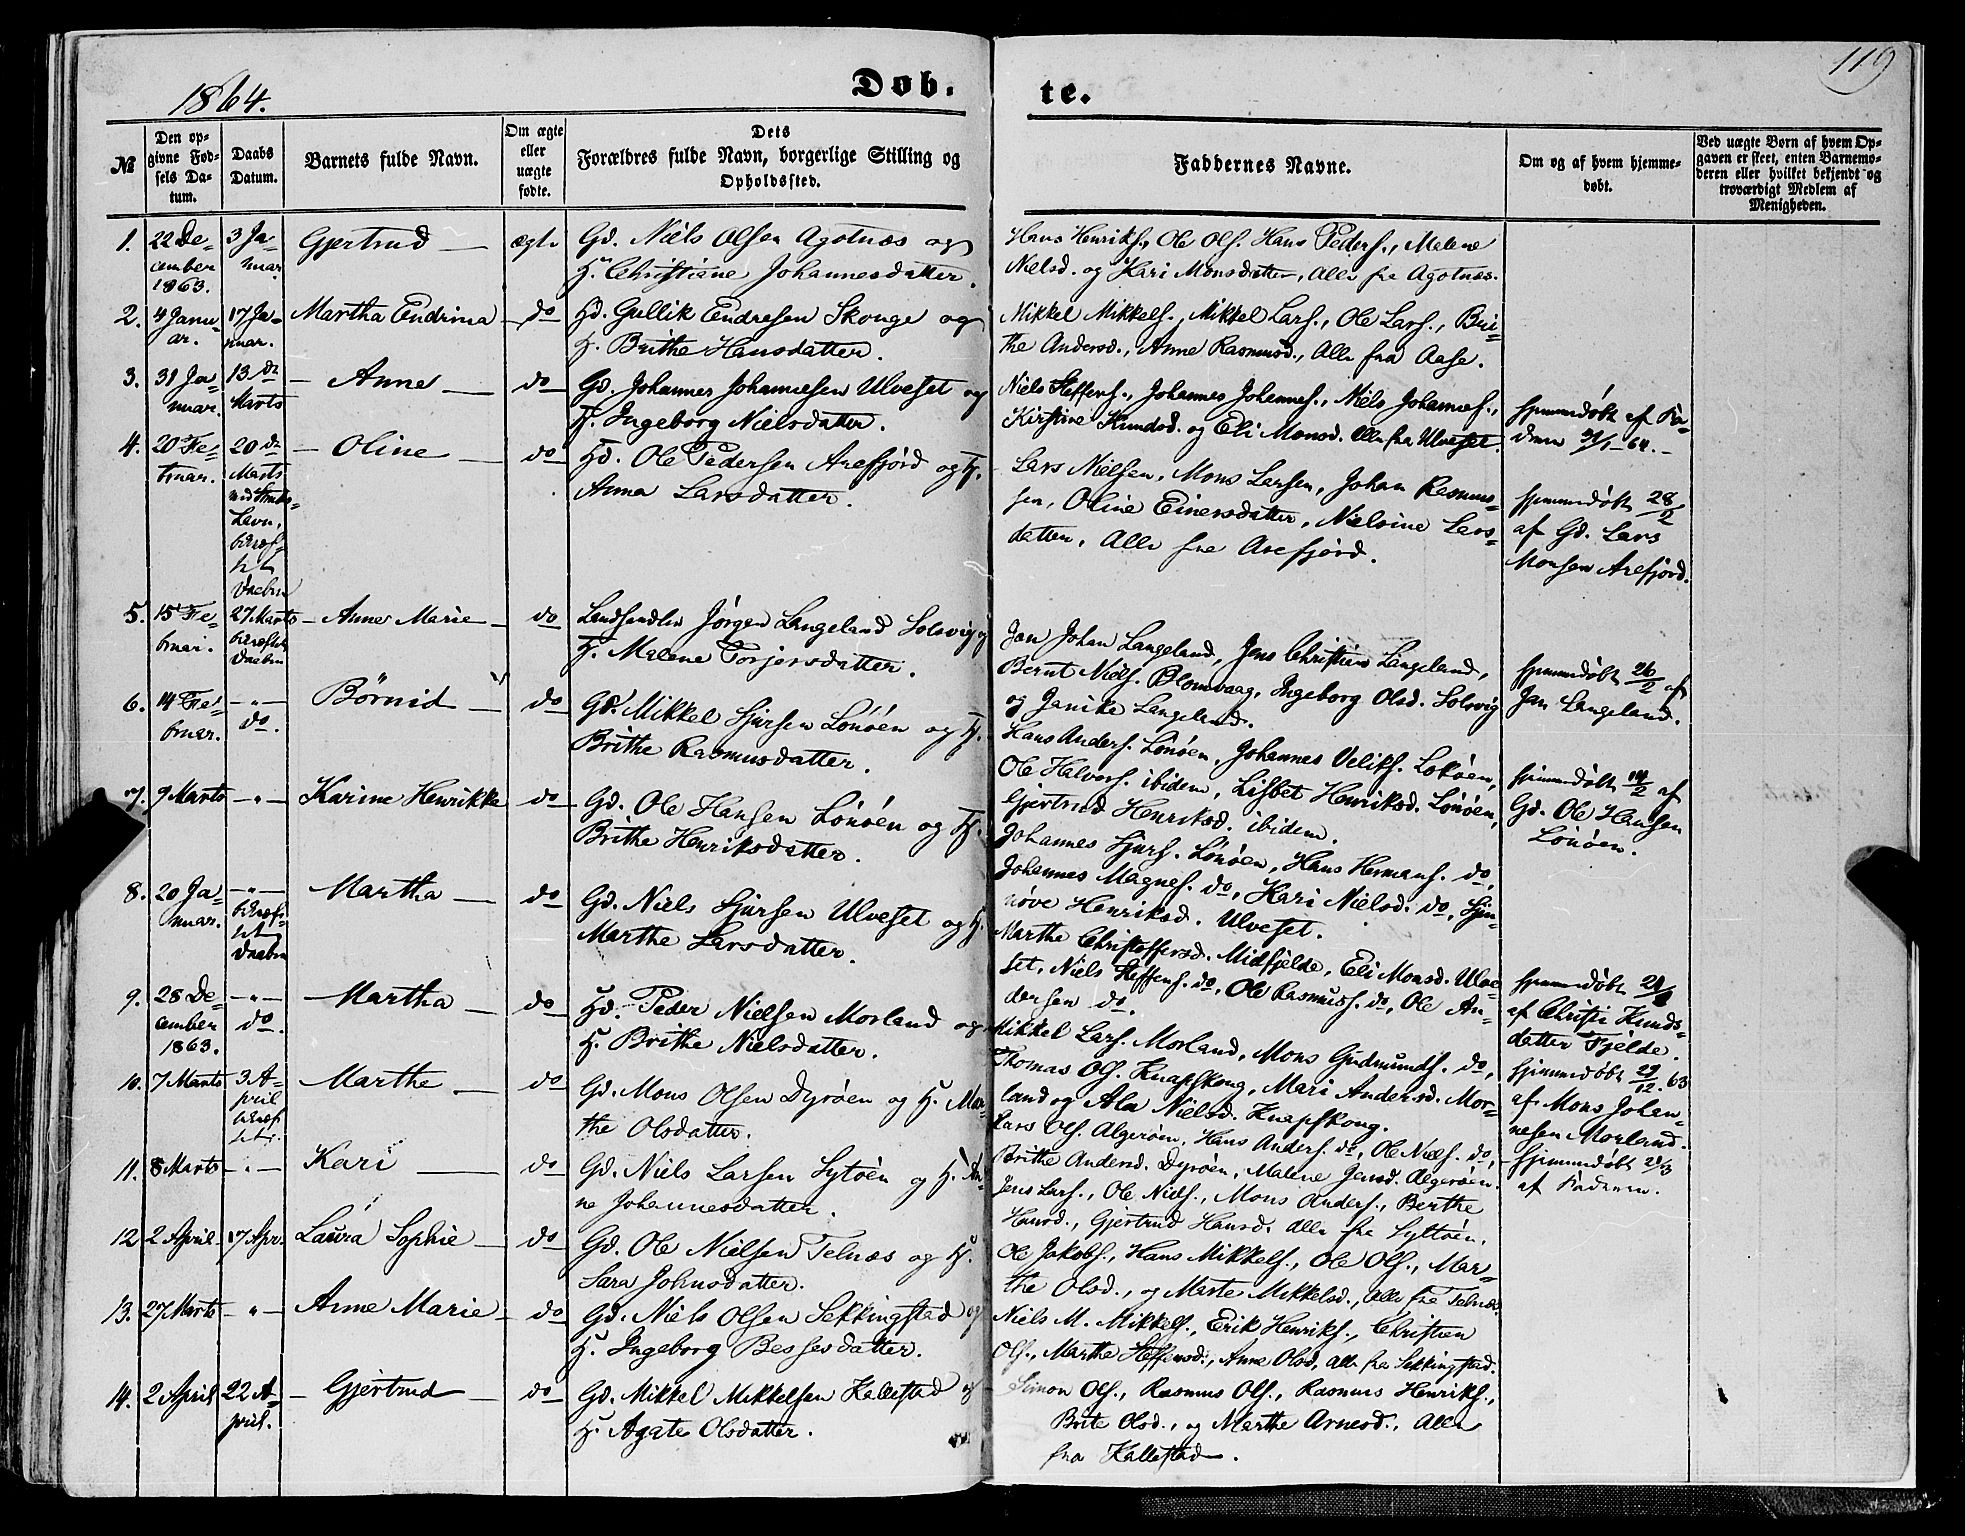 119
1864.
Døb-
te.
№
Den op-
givne Fød-
sels Da-
tum.
Daabs
Datum.
Barnets fulde Navn.
Om ægte
eller
uægte
fødte.
Dets
Forældres fulde Navn, borgerlige Stilling og
Opholdssted.
Faddernes Navne.
Om og af hvem hjemme-
døbt.
Ved uægte Børn af hvem Op-
gaven er skeet, enten Barnemo-
deren eller hvilket bekjendt og
troværdigt Medlem af
Menigheden.
1.
22 De-
cember
1863.
3 Ja-
nuar
Gjertrud
ægte
Gd. Niels Olsen Agotnæs og
H. Christiane Johannesdatter.
Hans Henriks., Ole Ols. Hans Peders., Malene
Nielsd. og Kari Monsdatter, Alle fra Agotnæs.
2.
4 Janu-
ar.
17 Ja-
nuar.
Martha Endrina
do
Hd. Gullik Endresen Skoge og
H. Brithe Hansdatter.
Mikkel Mikkels., Mikkel Lars., Ole Lars., Bri-
the Andersd., Anne Rasmusd., Alle fra Aase.
3.
31 Ja-
nuar.
13 de
Marts
Anne
do
Gd. Johannes Johannesen Ulveset og
H. Ingeborg Nielsdatter.
Niels Steffens., Johannes Johannes., Niels Johannes.,
Kirstine Knudsd. og Eli Monsd. Alle fra Ulveset.
hjemmedøbt af Fa-
deren 31/1-64.
4.
20 Fe-
bruar.
20 de
Marts
Oline
do
Hd. Ole Pedersen Arefjord og H.
Anna Larsdatter.
Lars Nielsen, Mons Larsen, Johan Rasmus-
sen, Oline Einersdatter, Nielsine Lars-
datter, Alle fra Arefjord.
hjemmedøbt 28/2
af Gd. Lars
Monsen Arefjord.
5.
15 Fe-
bruar.
27 Marts
bekræftet
Daaben
Anne Marie
do
Landhandler Jørgen Langeland Solsvig og
H. Malene Torjersdatter.
Jan Johan Langeland, Jens Christian Langeland,
Bernt Niels. Blomvaag, Ingeborg Olsd. Solsvig
og Janike Langeland.
hjemmedøbt 26/2 af
Jan Langeland.
6.
14 Fe-
bruar.
do.
Børnid
do
Gd. Mikkel Sjursen Lønøen og H.
Brithe Rasmusdatter.
Hans Anders. Lønøen, Johannes Veliks. Lokøen,
Ole Halvors. ibidem, Lisbet Henriksd. Lønøen,
Gjertrud Henriksd. ibidem.
hjemmedøbt 14/2 af
Gd. Ole Hansen
Lønøen.
7.
9 Marts
Karine Henrikke
do
Gd. Ole Hansen Lønøen og H.
Brithe Henriksdatter.
Johannes Sjurs. Lønøen, Hans Hermans. do,
Johannes Magnes. do, Kari Nielsd. do, Syn-
nøve Henriksd. Ulveset.
8.
20 Ja-
nuar.
bekræf-
tet
Daaben
Martha
do
Gd. Niels Sjursen Ulveset og H.
Marthe Larsdatter.
Marthe Christoffersd. Midfjelde, Eli Monsd. Ulve-
set, Niels Steffens. do, Ole Rasmuss. do, Ole An-
dersen do.
hjemmedøbt
af Christi Knuds-
datter Fjelde.
9.
28 De-
cember
1863.
do.
Martha
do
Hd. Peder Nielsen Morland og
H. Brithe Nielsdatter.
Mikkel Lars. Morland, Mons Gudmunds. do,
Thomas Ols. Knapskong, Mari Andersd. Mor-
land og Ala Nielsd. Knapskong.
hjemmedøbt 29/12.63
af Mons Johan-
nesen Morland.
10.
7 Marts
3 A-
pril
bekræf-
tet.
Marthe
do
Gd. Mons Olsen Dyrøen og H. Mar-
the Olsdatter.
Lars Ols. Algerøen, Hans Anders. do, Ole Niels. do,
Brithe Andersd. Dyrøen, Malene Jensd. Algerøen.
hjemmedøbt 21/3
af Faderen.
11.
8 Marts
Kari
do
Gd. Niels Larsen Syltøen og H. An-
ne Johannesdatter.
Jens Lars., Ole Niels., Mons Anders., Berthe
Hansd., Gjertrud Hansd. Alle fra Syltøen.
12
2 April
17 Apr.
Laura Sophie
do
Gd. Ole Nielsen Telnæs og H.
Sara Johnsdatter.
Ole Jakobs., Hans Mikkels., Ole Ols., Mar-
the Olsd., og Marte Mikkelsd., Alle fra Telnæs.
13.
27 Marts
Anne Marie
do
Gd. Niels Olsen Sekkingstad og
H. Ingeborg Bessesdatter.
Niels M. Mikkels., Erik Henriks., Christien
Ols., Marthe Steffensd., Anne Olsd, Alle fra Sekkingstad.
14.
2 April
22 A-
pril.
Gjertrud
do
Gd. Mikkel Mikkelsen Kallestad og
H. Agate Olsdatter.
Simon Ols., Rasmus Ols., Rasmus Henriks.,
Brite Olsd., og Marthe Arnesd., Alle
fra Kallestad.